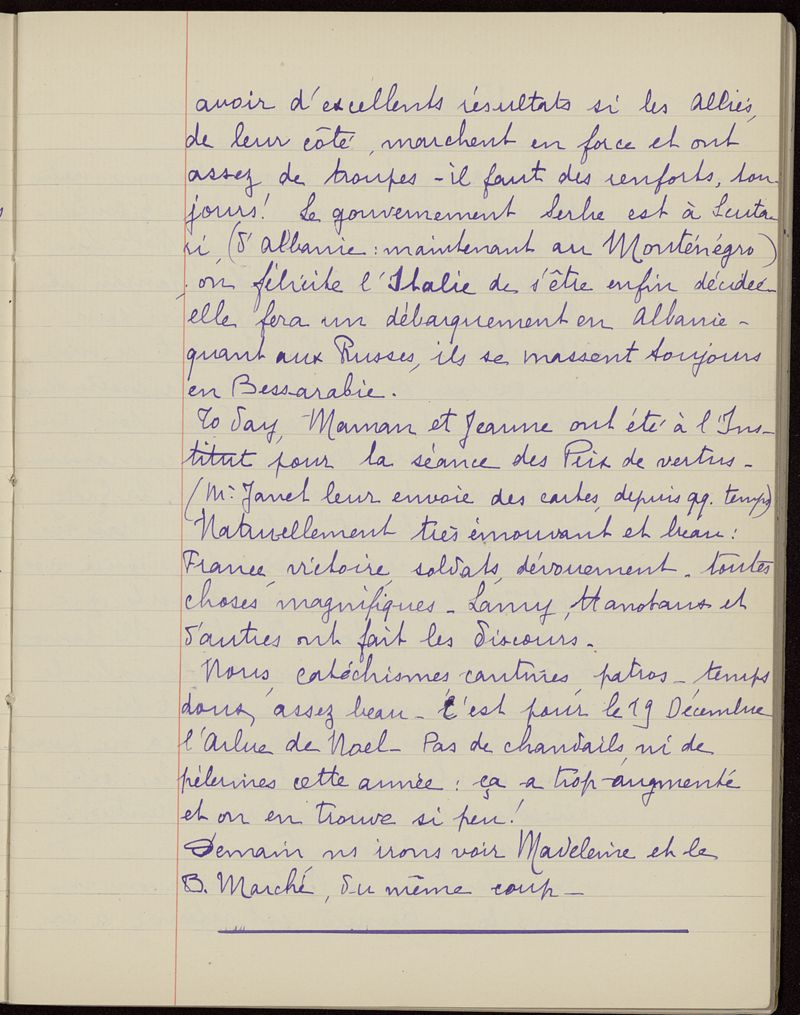 avoir d'excellents résultats si les Alliés,
de leur côté, marchent en force et ont
assez de troupes - il faut des renforts, tou-
jours! Le gouvernement Serbe est à Scuta-
ri, (d'Albanie : maintenant au Monténégro)
, on félicite l'Italie de s'être enfin décidée -
elle fera un débarquement en Albanie -
quant aux Russes, ils se massent toujours
en Bessarabie.
To day, Maman et Jeanne ont été à l'Ins-
titut pour la séance des Prix de vertus -
(Mr Janet leur envoie des cartes, depuis qq. temps)
Naturellement très émouvant et beau :
France, victoire, soldats, dévouement - toutes
choses magnifiques - Lamy, Hanotaux et
d'autres ont fait les discours -
Nous, catéchismes cantines, patros - temps
doux, assez beau - C'est pour le 19 Décembre
l'Arbre de Noel - Pas de chandails ni de
pèlerines cette année : ça a trop augmenté
et on en trouve si peu!
Demain ns irons voir Madeleine et le
B. Marché, du même coup -